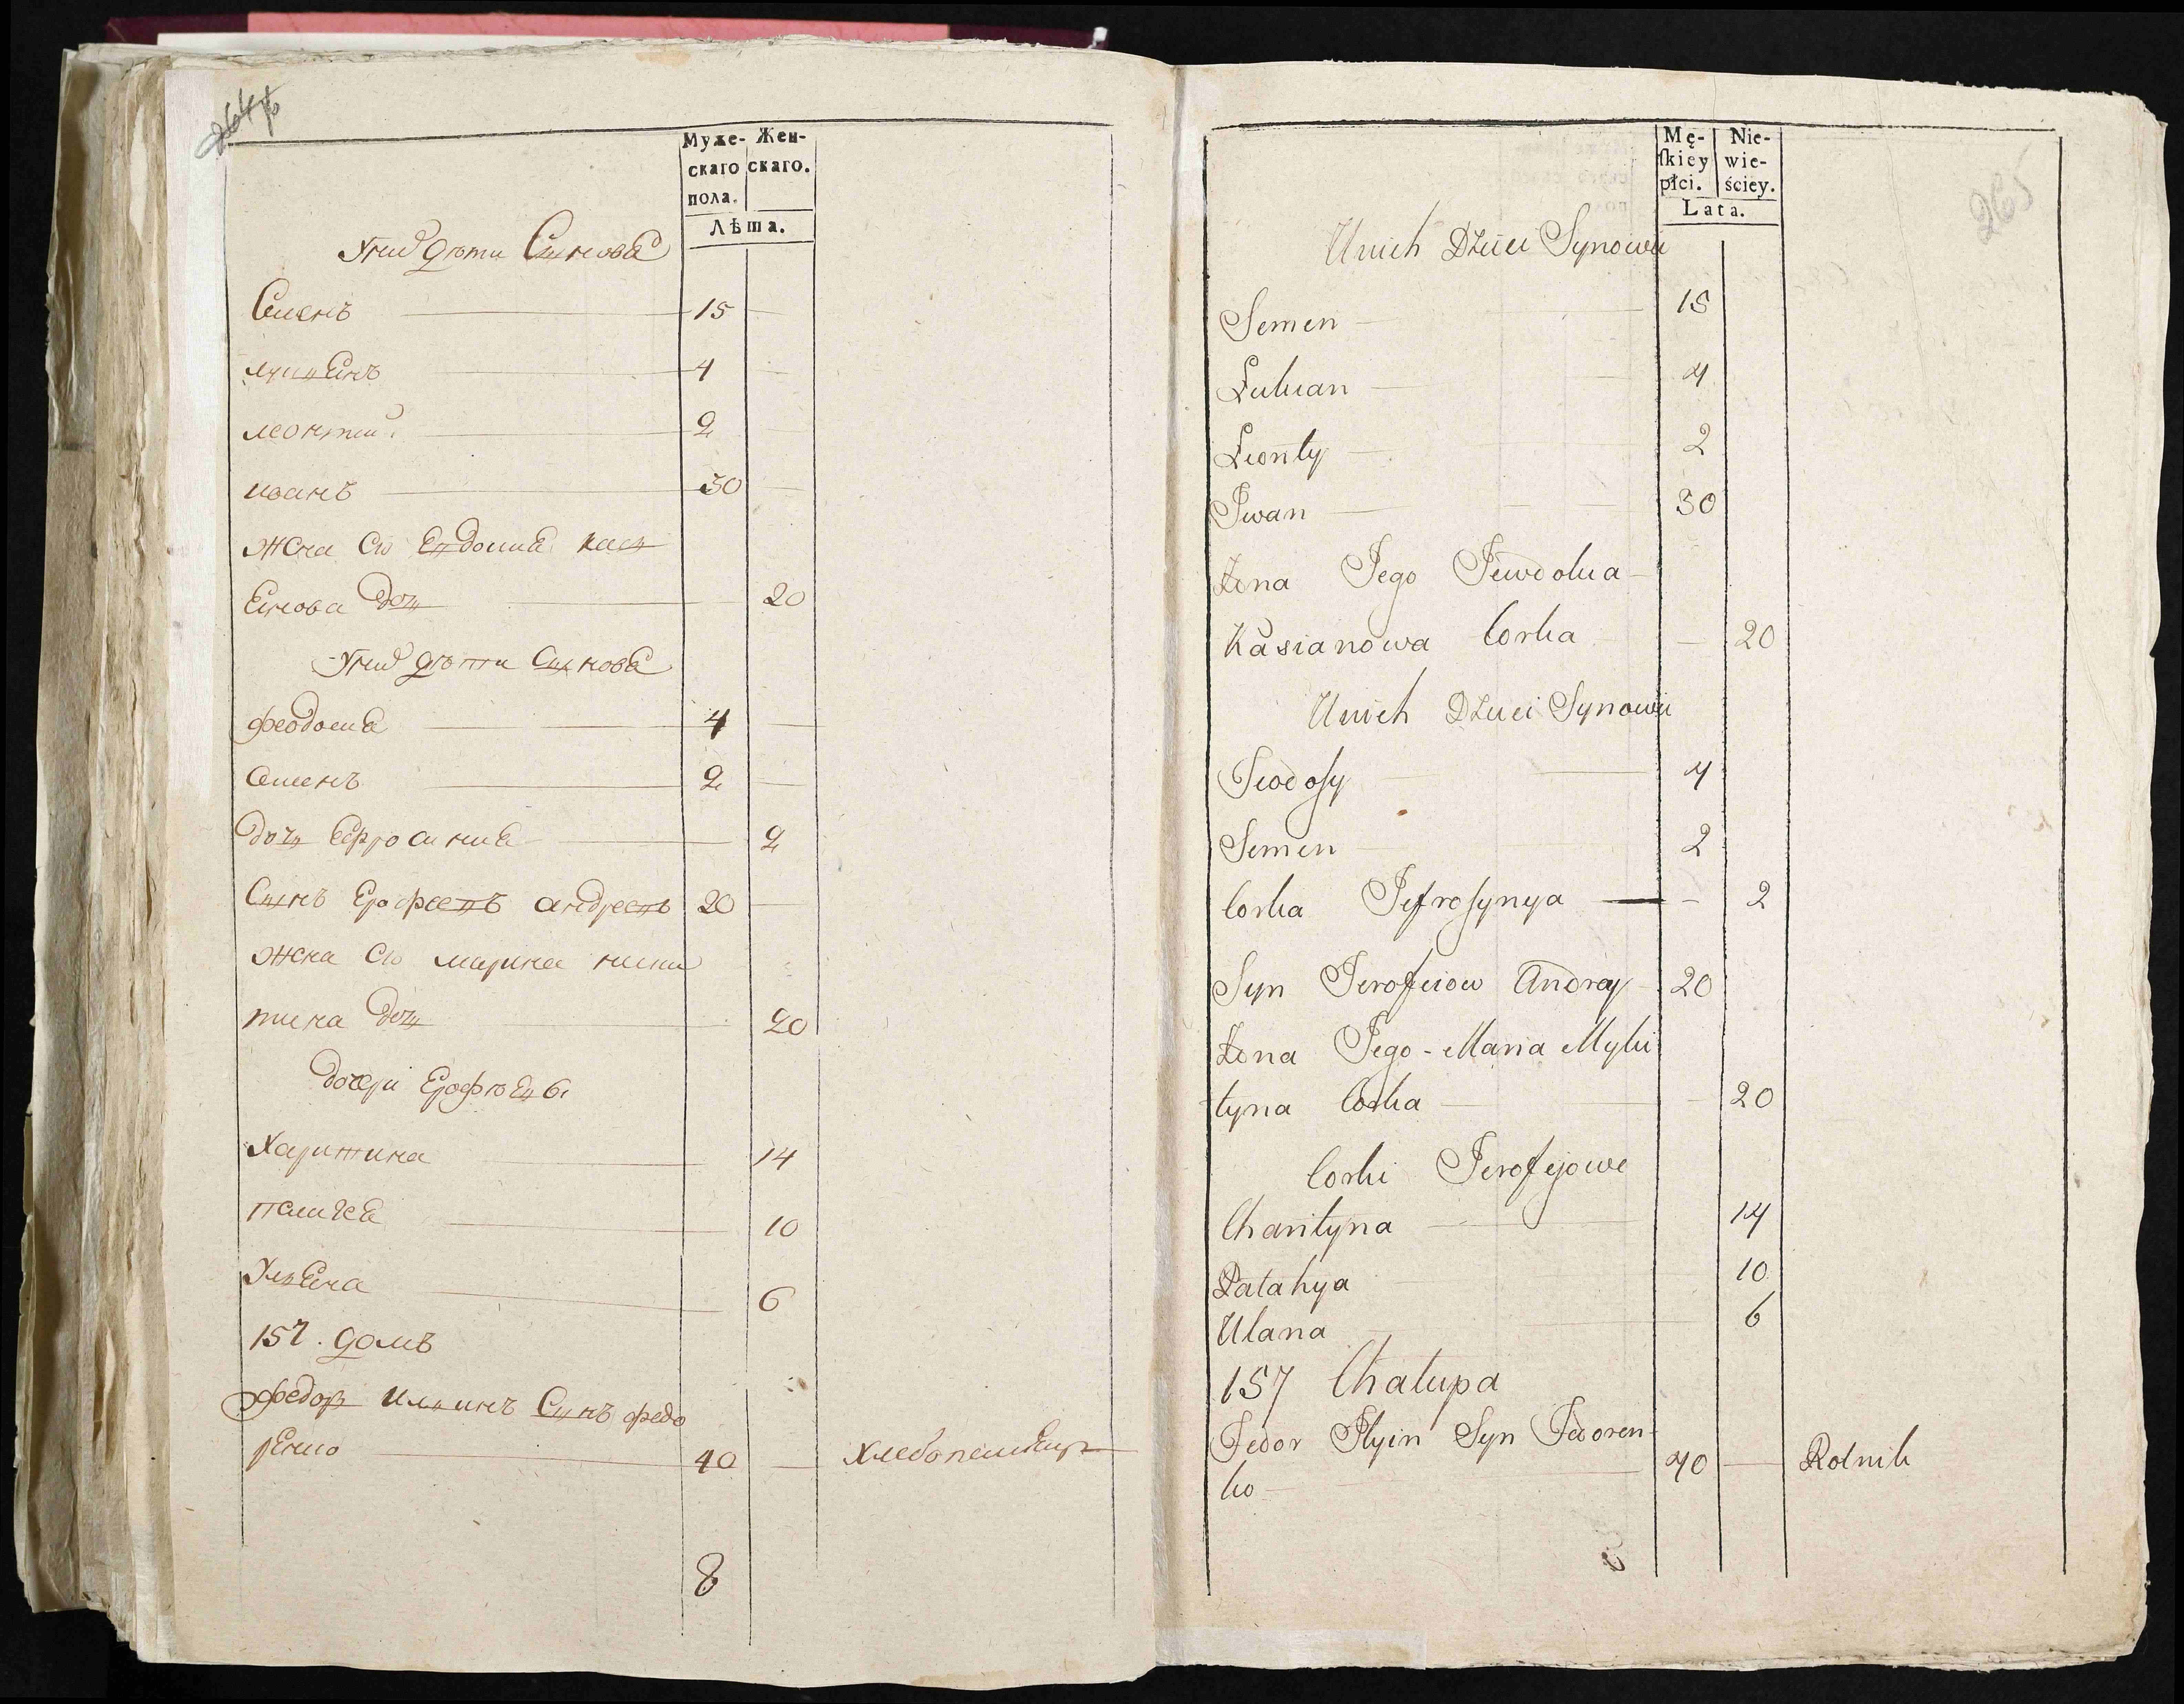 264
Муже-
скаго
пола.
Жен-
скаго.
Лѣта.
Унихъ дѣти Синове
Семенъ 15
лукіянъ 4
леонтий 2
иванъ 30
жена его Евдокия Кась
Янова дочь 20
Унихъ дѣти Синове
феодосий 4
семенъ 2
дочь Ефросиния 2
Синъ Ерофеевъ андрей 20
жена его марина ники
тина дочь 20
дочери Ерофѣевы
Харитина 14
пелагея 10
Ульяна 6
157. домъ
федоръ ильинъ Синъ федо
ренко 40 Хлебопашецъ
8
265
Mę-
ſkiey
płci.
Nie-
wie-
ściey.
Lata.
Unich Dzieci Synowie
Semen 15
Łukian 4
Leonty 2
Jwan 30
Żona Jego Jewdokia
Kasianowa Corka 20
Unich Dzieci Synowie
Teodoſy 4
Semen 2
Corka Jefroſynya 2
Syn Jerofeiow Andrey 20
Żona Jego Maria Myki
tyna Corka 20
Corki Jerofejowe
Charityna 14
Palahya 10
Ulana 6
157 Chalupa
Fedor Jlyin Syn Fedoren-
ko 40 Rolnik